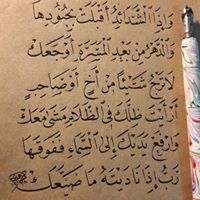 وَإِذَا الشَّدَائِدُ أَقْبَلَتْ بِجُنُودِهَا
وَالدَّهْرُ مِن بَعْدِ الْمَسَرَّةِ أَوْجَعَكْ
لَا تَرْجُ شَيْئًا مِنْ أَخٍ أَوْ صَاحِبٍ
أَرَأَيْتَ ظِلَّكَ فِي الظَّلَامِ مَشَى مَعَكْ
وَارْفَعْ يَدَيْكَ إِلَى السَّمَاءِ فَفَوْقَهَا
رَبٌّ إِذَا نَادَيْتَهُ مَا ضَيَّعَكْ